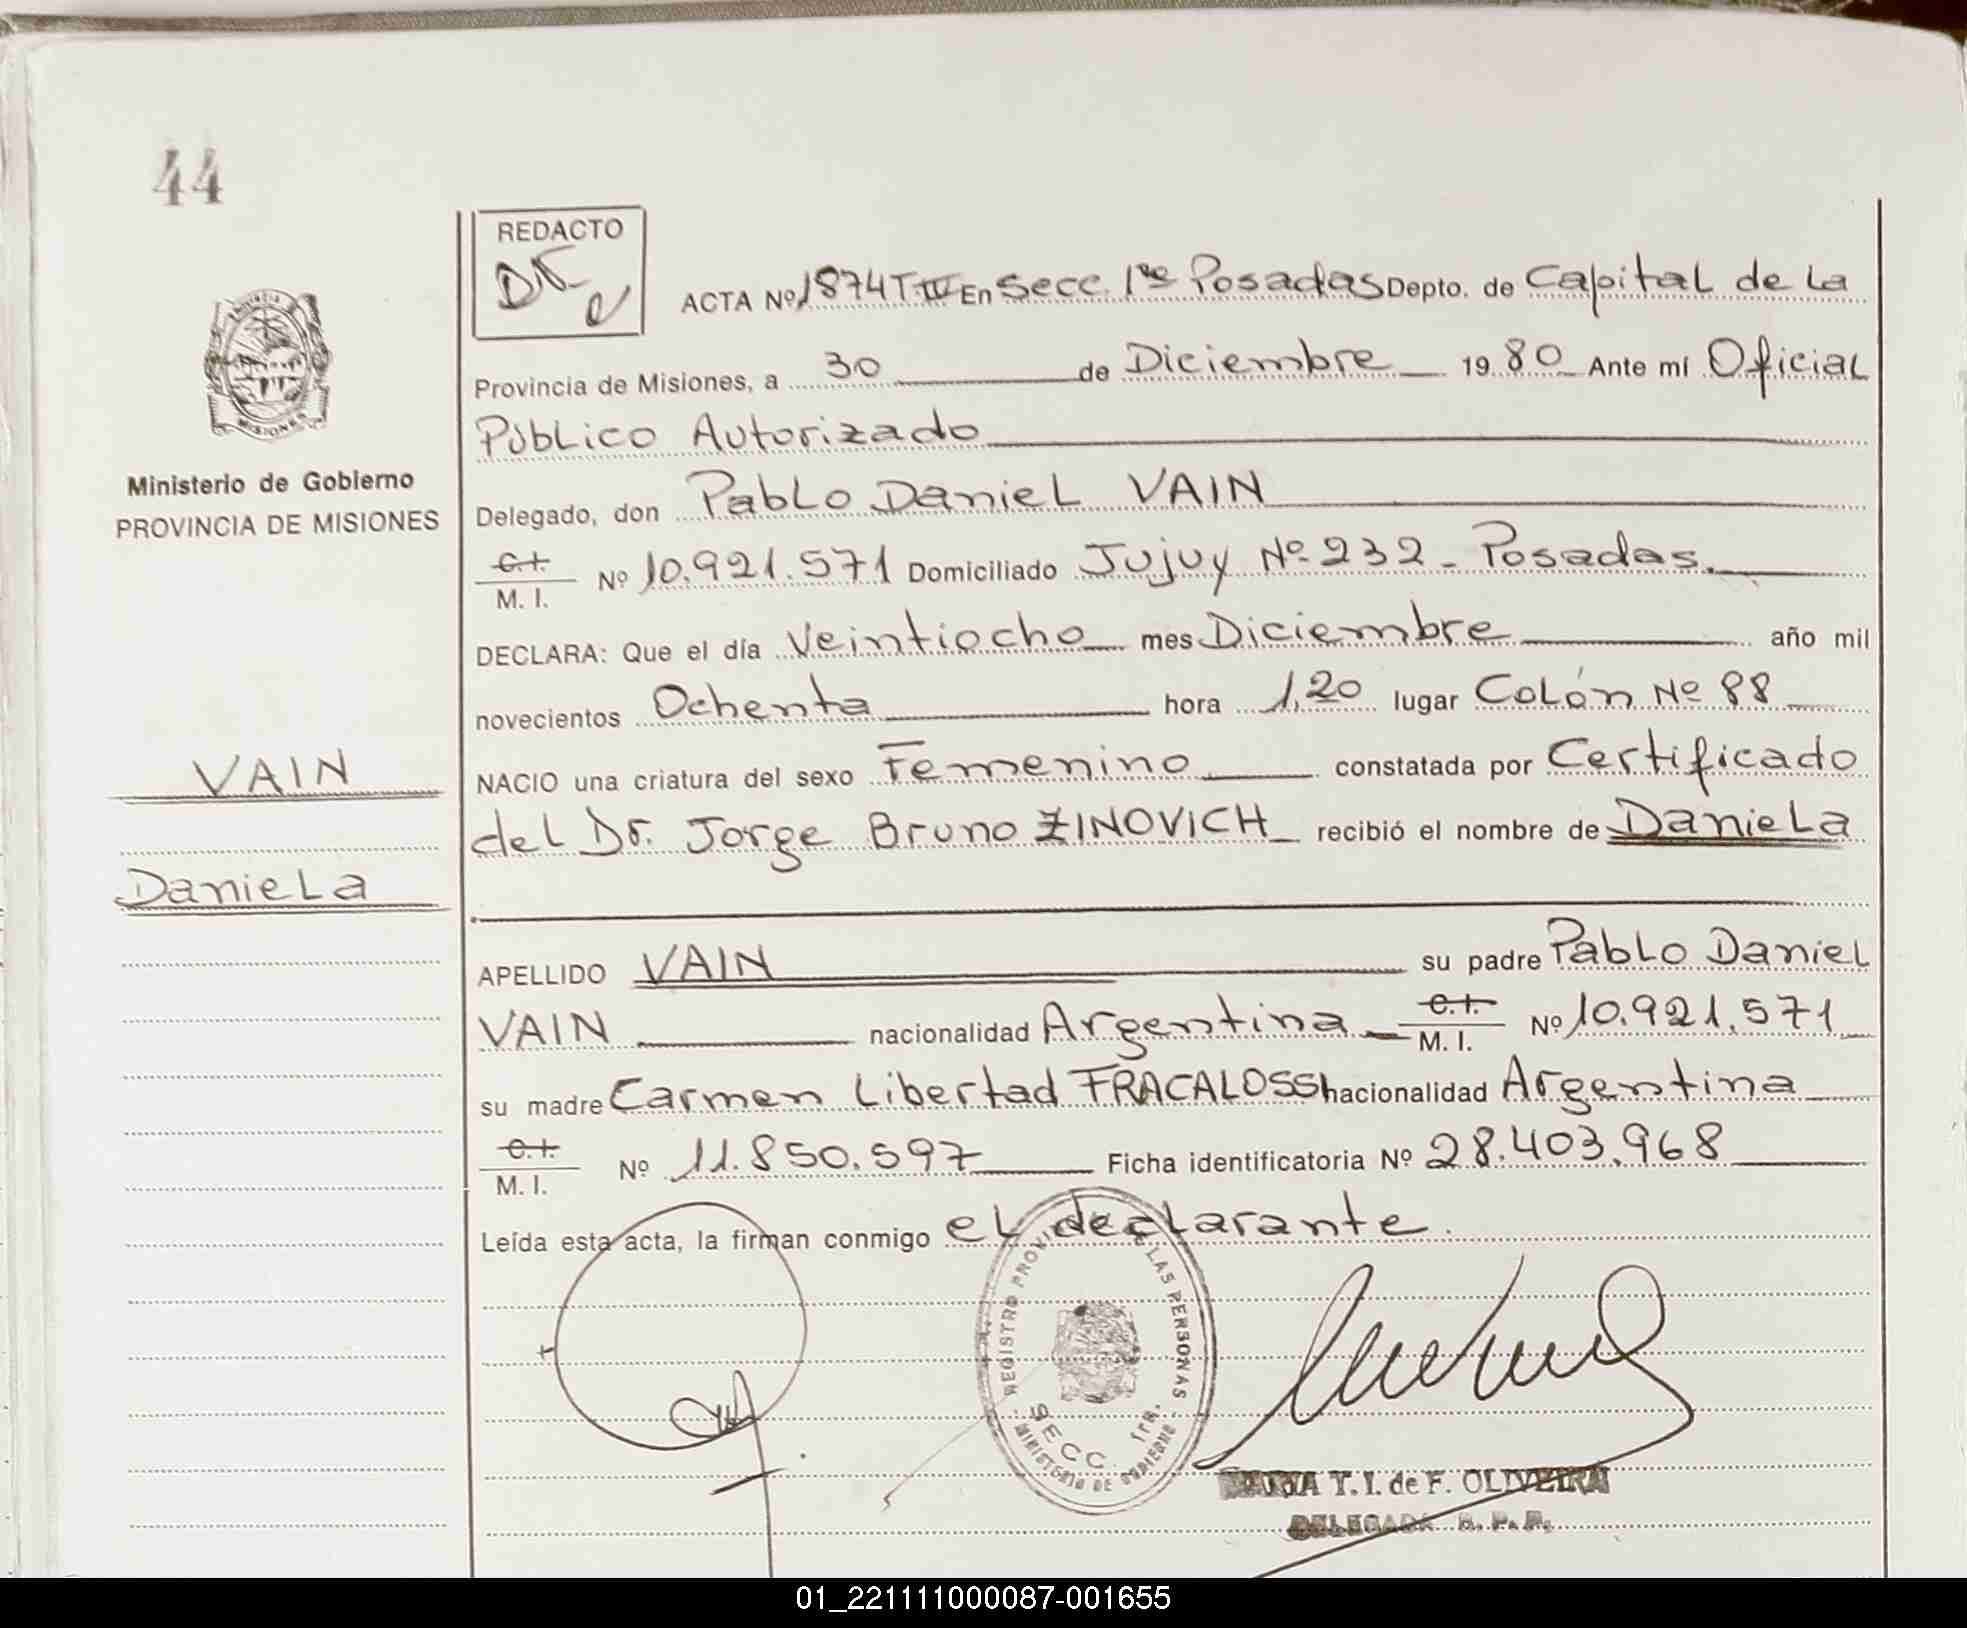 44
REDACTO
ACTA Nº 1874 T. IV En Secc. 1ra Posadas Depto. de Capital de La
Provincia de Misiones, a 30 de Diciembre 1980 Ante mí Oficial
Público Autorizado
Delegado, don Pablo Daniel VAIN
C.I. M. I. Nº 10.921.571 Domiciliado Jujuy Nº 232 - Posadas.
DECLARA: Que el día Veintiocho mes Diciembre año mil
novecientos Ochenta hora 1,20 lugar Colón Nº 88
NACIO una criatura del sexo Femenino constatada por Certificado
del Dr. Jorge Bruno ZINOVICH recibió el nombre de Daniela
APELLIDO VAIN su padre Pablo Daniel
VAIN nacionalidad Argentina C.I. M. I. Nº 10.921.571
su madre Carmen Libertad FRACALOSSI nacionalidad Argentina
C.I. M. I. Nº 11.850.597 Ficha identificatoria Nº 28.403.968
Leída esta acta, la firman conmigo el declarante.
Ministerio de Gobierno
PROVINCIA DE MISIONES
VAIN
Daniela
MISIONES
REGISTRO PROVINCIAL DE LAS PERSONAS
SECC. 1RA.
MINISTERIO DE GOBIERNO
T. I. de F. OLIVEIRA
DELEGADA R. P. P.
01_221111000087-001655